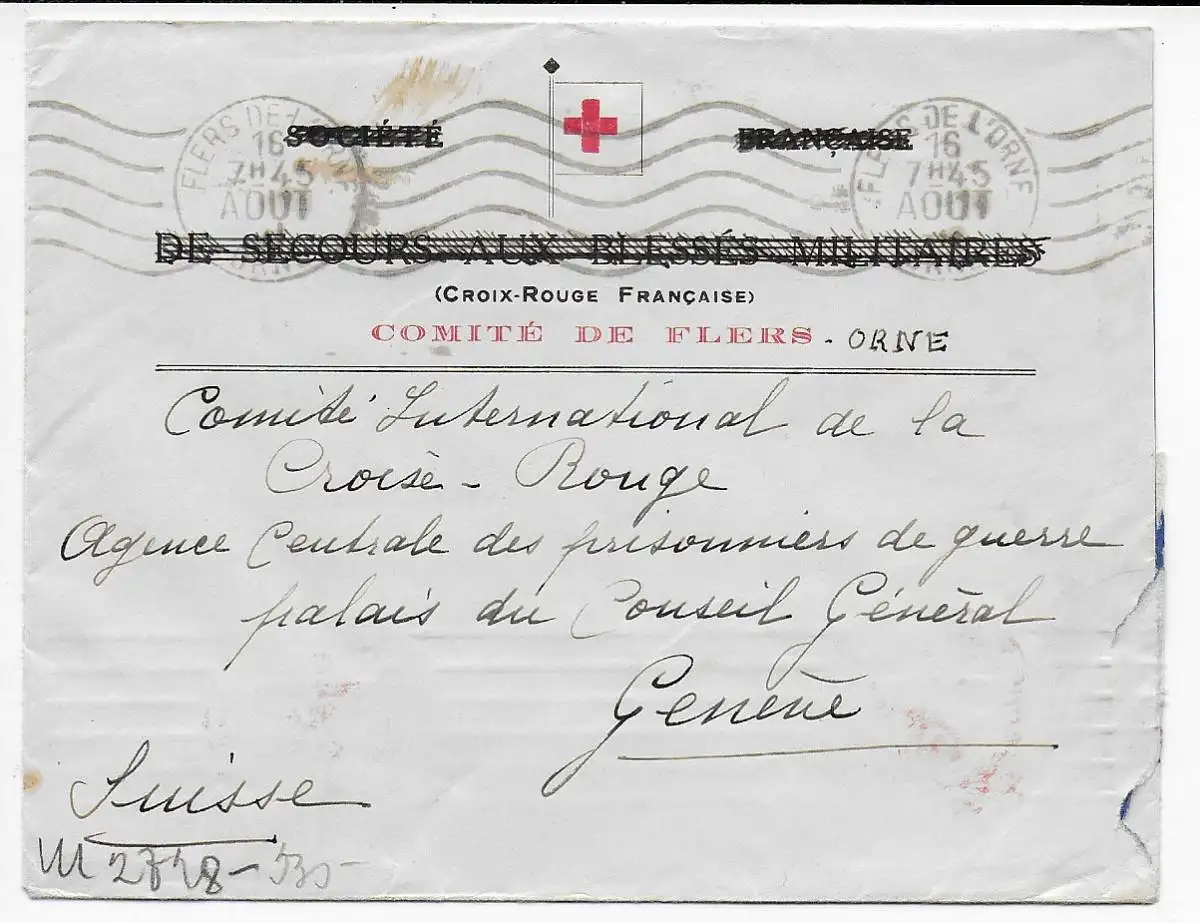 FLERS DE L'ORNE
16
7H45
AOUT
ORNE
FLERS DE L'ORNE
16
7H45
AOUT
SOCIÉTÉ FRANÇAISE
DE SECOURS AUX BLESSÉS MILITAIRES
(CROIX-ROUGE FRANÇAISE)
COMITÉ DE FLERS - ORNE
Comité International de la
Croise - Rouge
Agence Centrale des prisonniers de guerre
palais du Conseil Général
Genève
Suisse